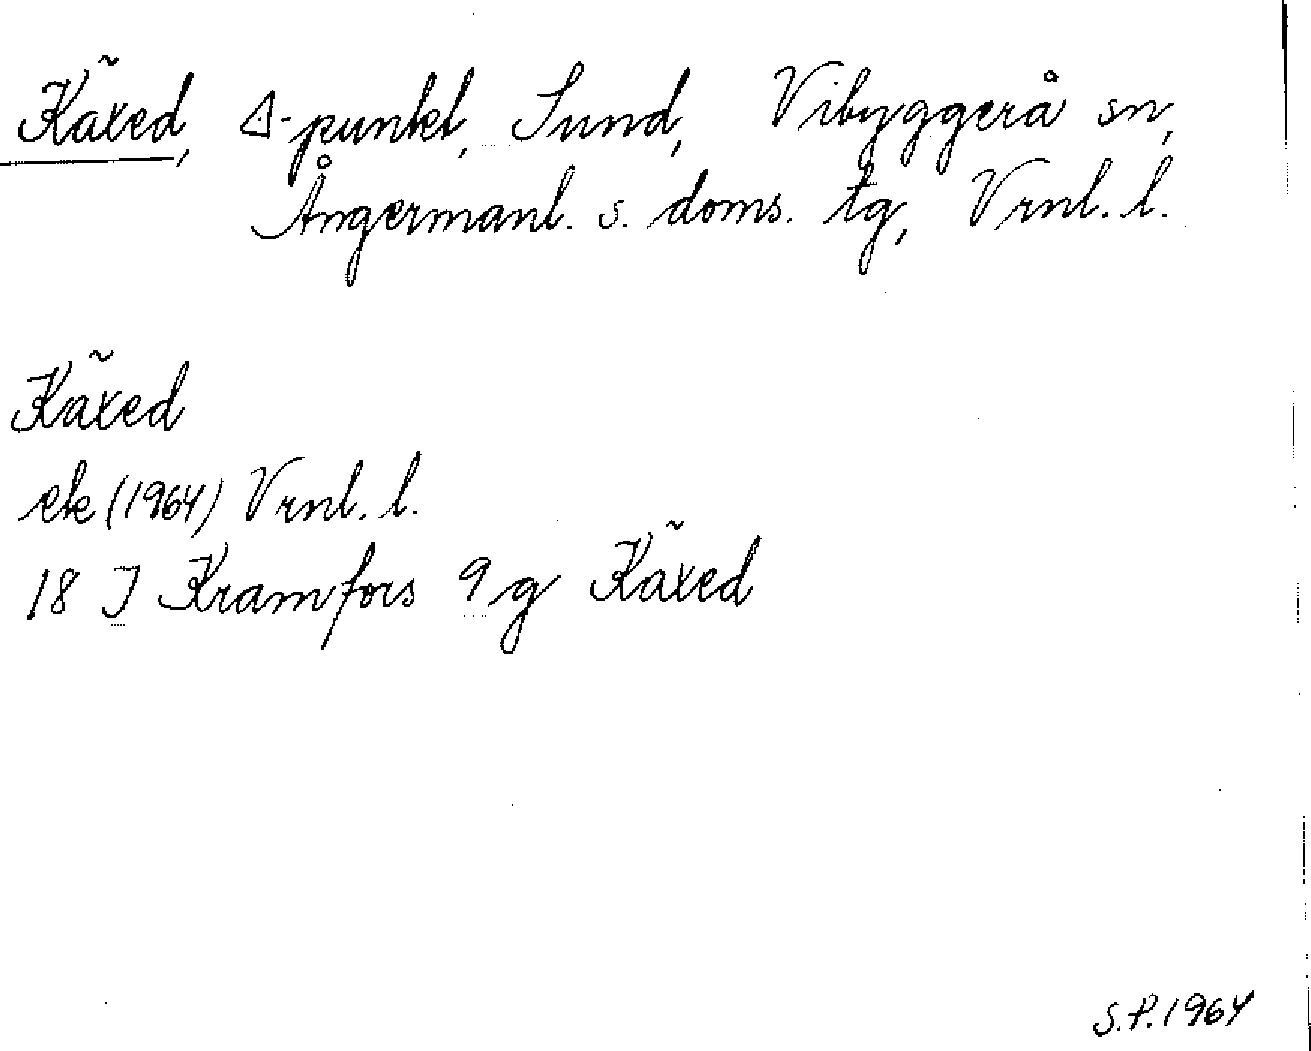 Käxed, Δ-punkt, Sund, Vibyggerå sn,
Ångermanl. s. doms. tg, Vrnl. l.
Käxed
ek (1964) Vrnl. l.
18 J Kramfors 9 g Käxed
S.P. 1964